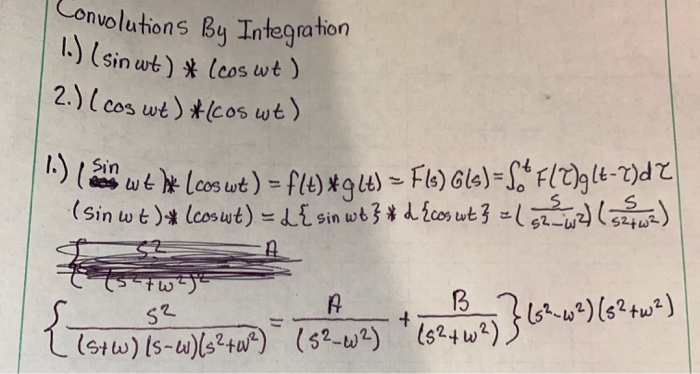 Convolutions By Integration
1.) (sin ωt) * (cos ωt)
2.) (cos ωt) * (cos ωt)
1.) (sin ωt) * (cos ωt) = f(t) * g(t) = F(s) G(s) = ∫₀ᵗ F(τ)g(t-τ)dτ
(sin ωt) * (cos ωt) = ℒ{sin ωt} * ℒ{cos ωt} = (s/(s²-ω²)) (s/(s²+ω²))
{ s²/((s+ω)(s-ω)(s²+ω²)) = A/(s²-ω²) + B/(s²+ω²) } (s²-ω²)(s²+ω²)